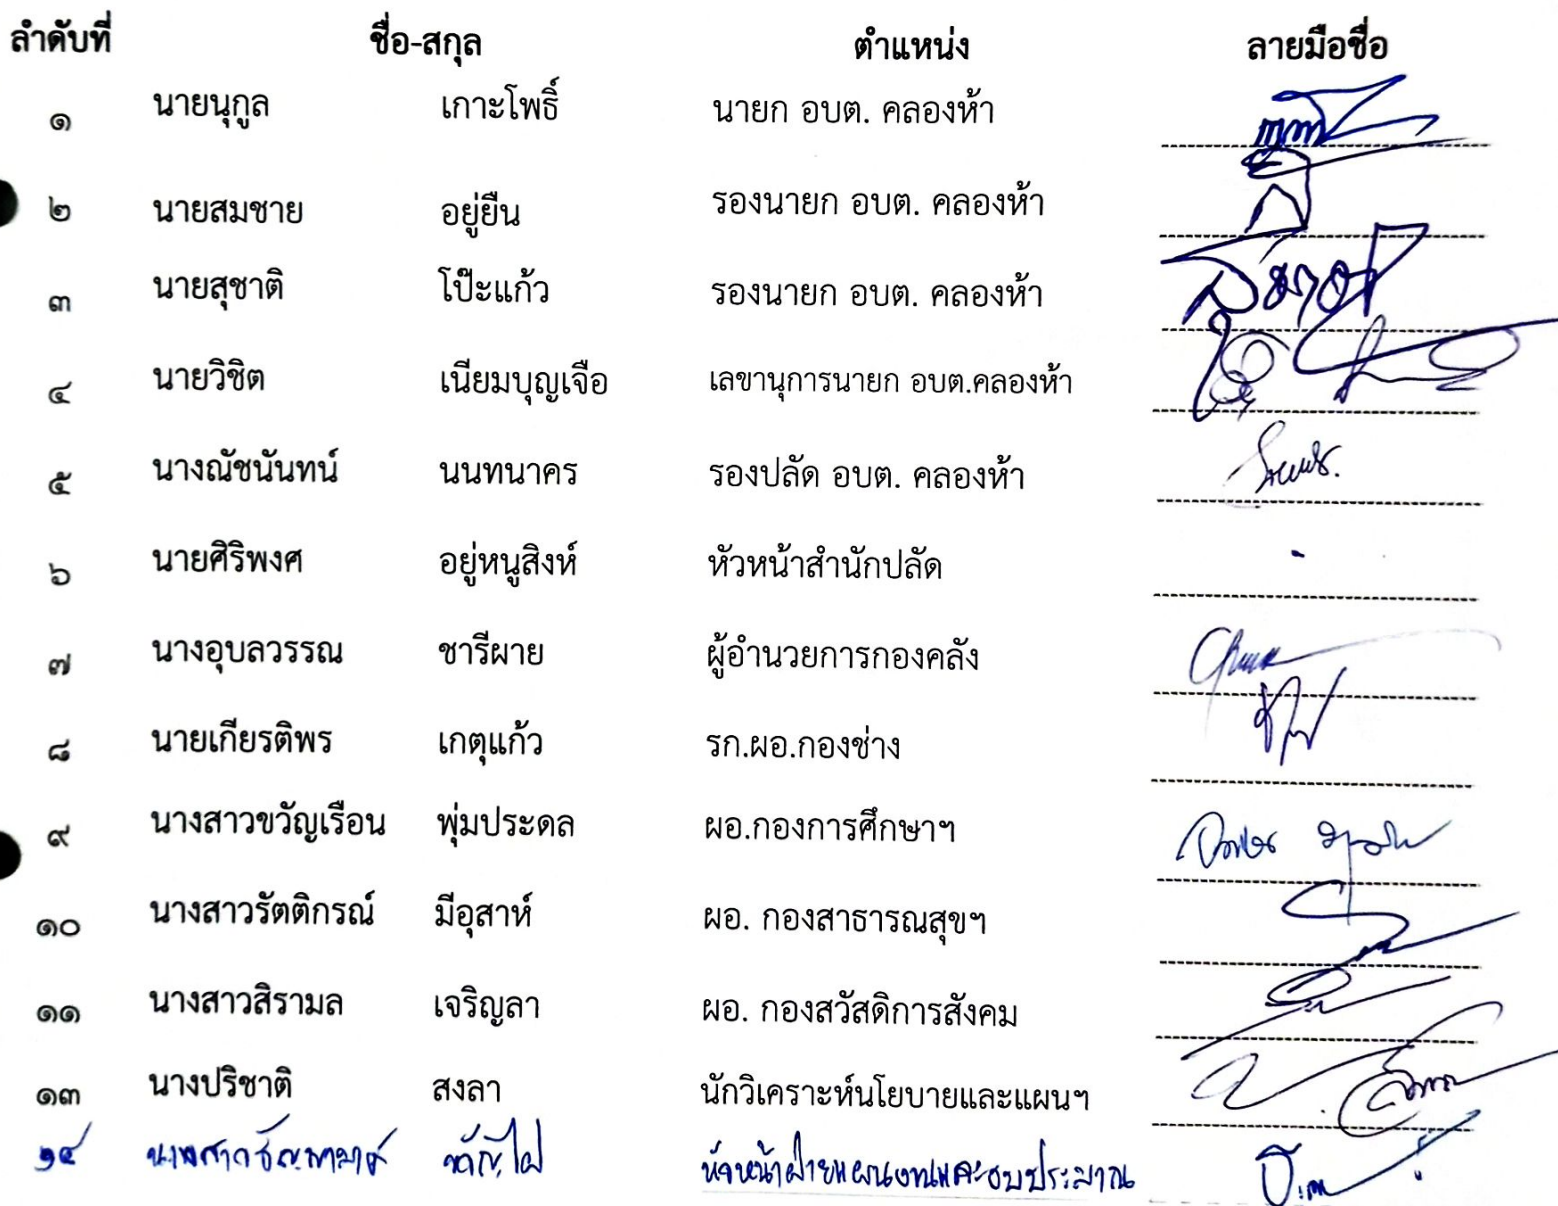 ลำดับที่ ชื่อ-สกุล ตำแหน่ง ลายมือชื่อ
๑ นายนุกูล เกาะโพธิ์ นายก อบต. คลองห้า
๒ นายสมชาย อยู่ยืน รองนายก อบต. คลองห้า
๓ นายสุชาติ โป๊ะแก้ว รองนายก อบต. คลองห้า
๔ นายวิชิต เนียมบุญเจือ เลขานุการนายก อบต.คลองห้า
๕ นางณัชนันทน์ นนทนาคร รองปลัด อบต. คลองห้า
๖ นายศิริพงศ อยู่หนูสิงห์ หัวหน้าสำนักปลัด
๗ นางอุบลวรรณ ชารีผาย ผู้อำนวยการกองคลัง
๘ นายเกียรติพร เกตุแก้ว รก.ผอ.กองช่าง
๙ นางสาวขวัญเรือน พุ่มประดล ผอ.กองการศึกษาฯ
๑๐ นางสาวรัตติกรณ์ มีอุสาห์ ผอ. กองสาธารณสุขฯ
๑๑ นางสาวสิรามล เจริญลา ผอ. กองสวัสดิการสังคม
๑๓ นางปริชาติ สงลา นักวิเคราะห์นโยบายและแผนฯ
๑๔ หัวหน้าฝ่ายแผนงานและงบประมาณ